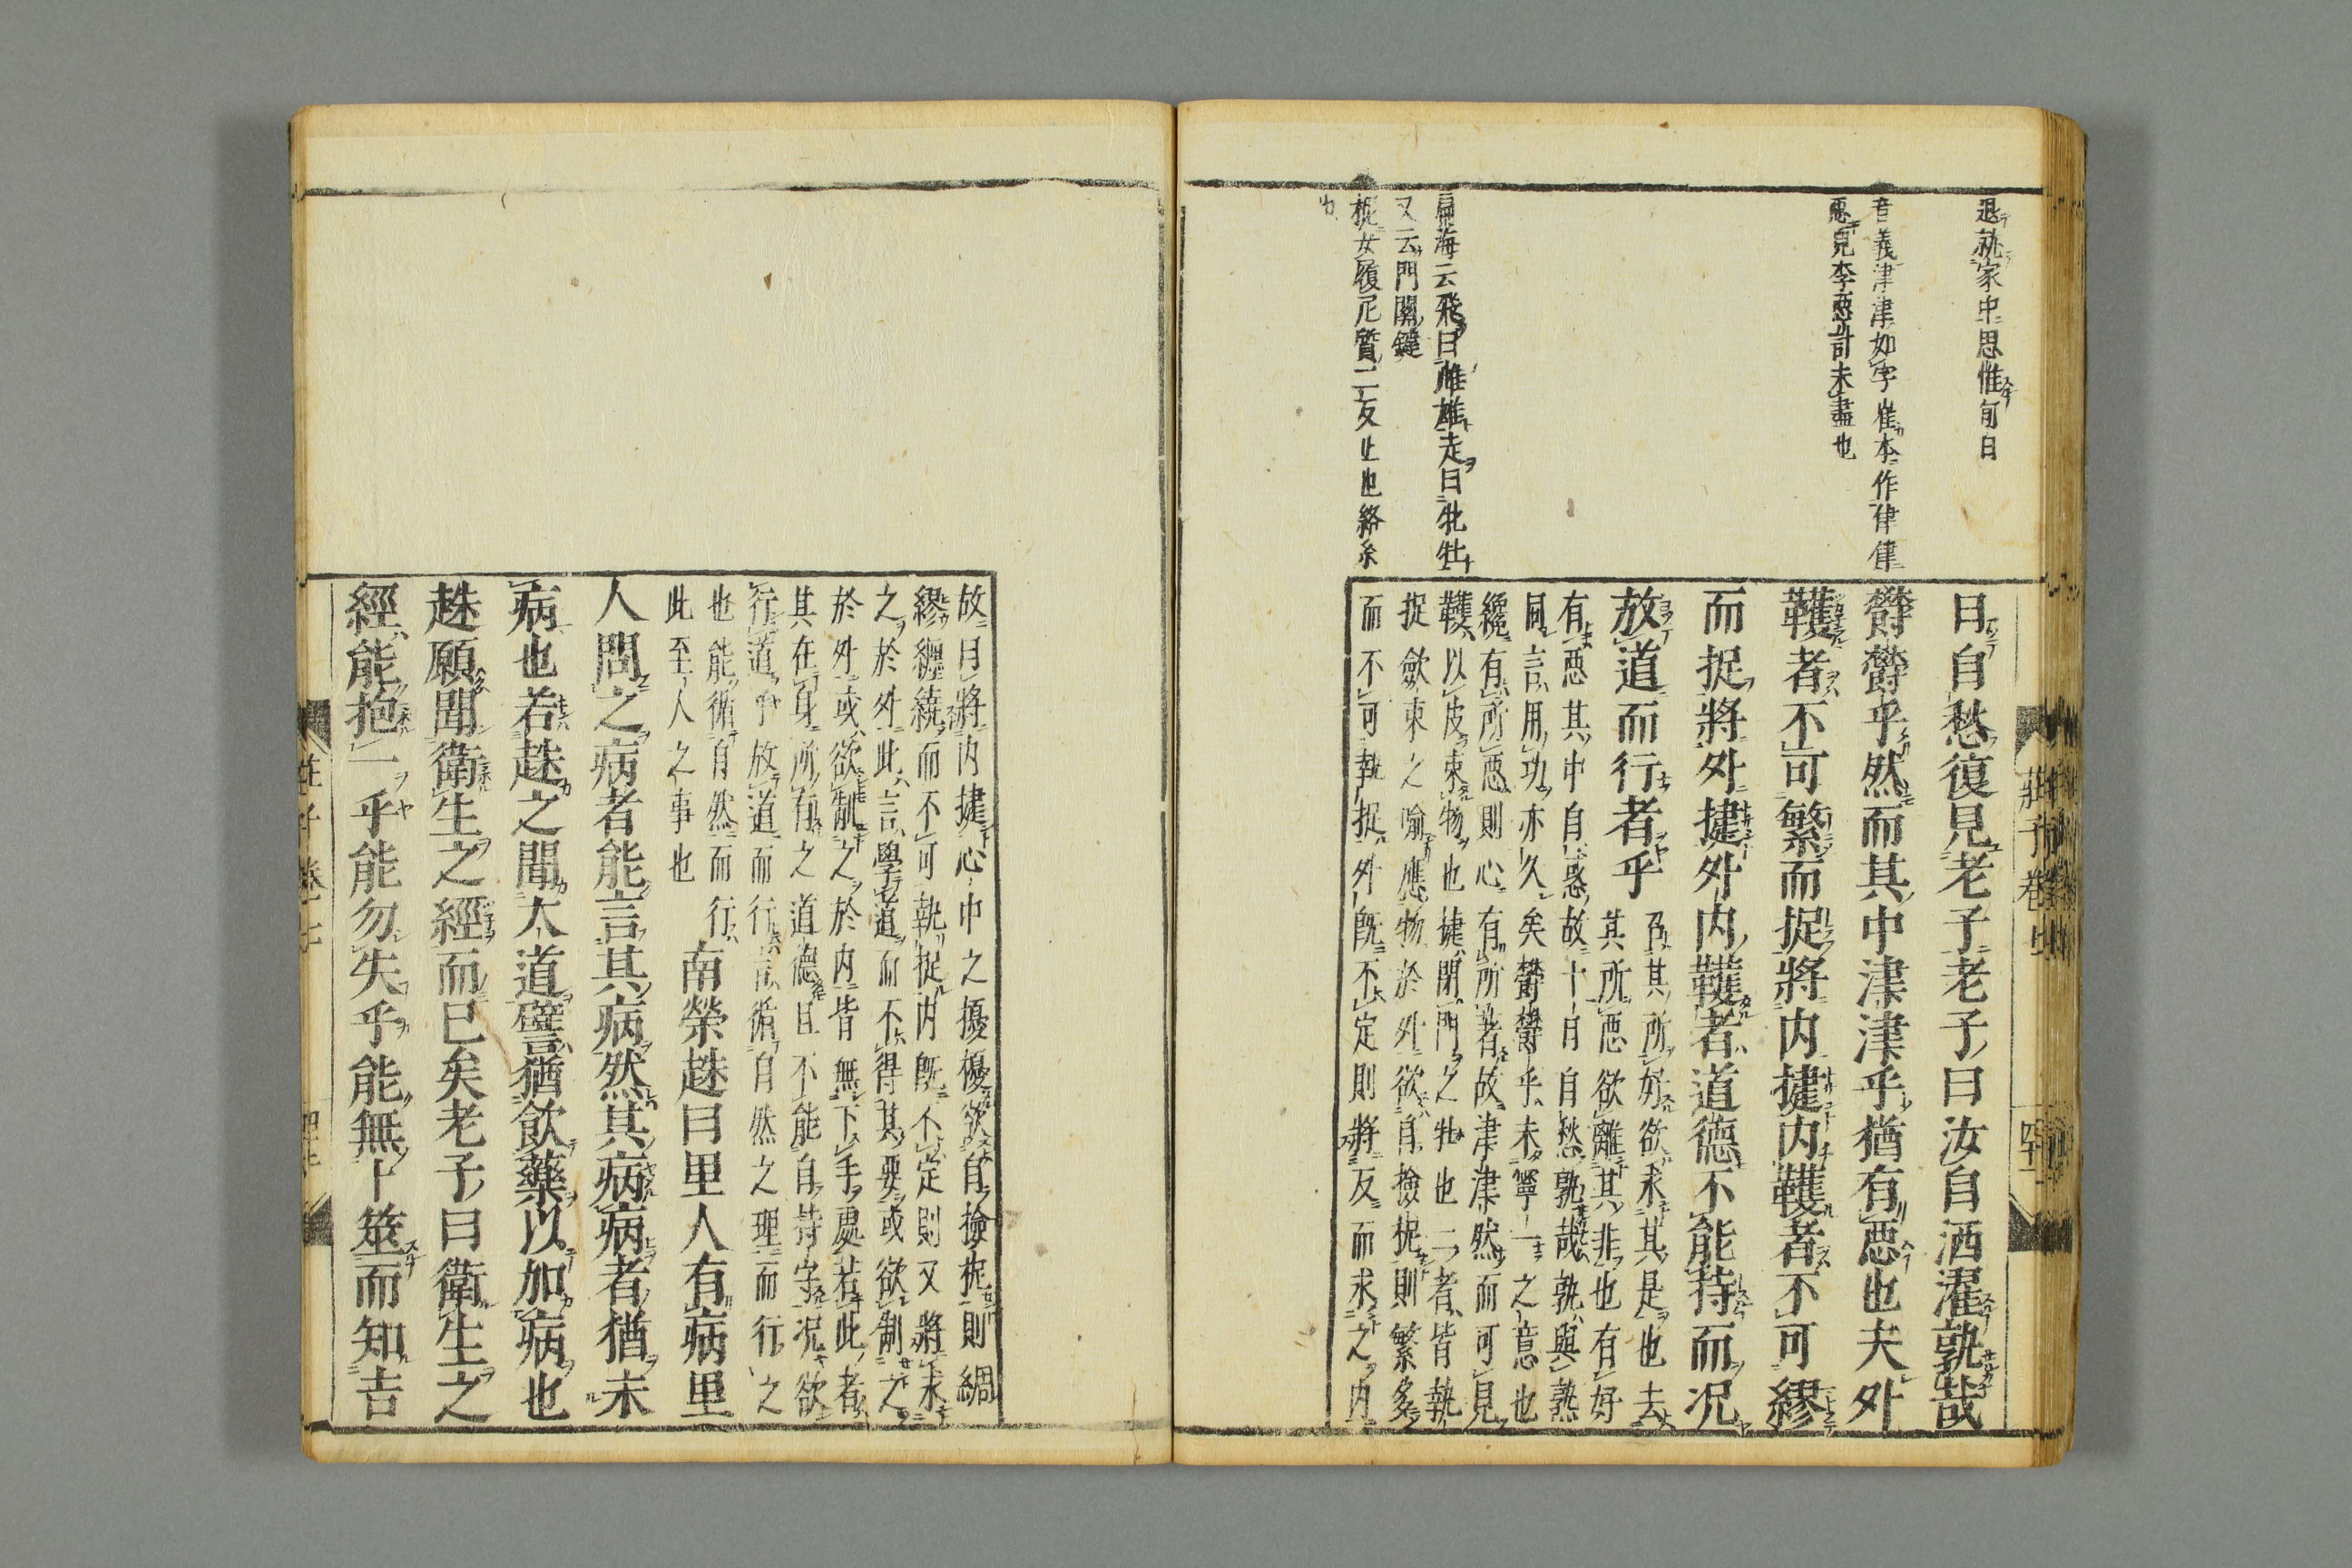 退孰家中思惟旬日
音義津津如字崔本作律律
惡見李惡計未盡也
扁海云飛曰雌雄走曰牝牡
又云門關鍵
柅女履尼質二反止也絡糸
日自愁復見老子老子曰汝自洒濯孰哉
欝欝乎然而其中津津乎猶有惡也夫外
韄者不可繁而捉將内揵内韄者不可繆
而捉將外揵外内韄者道德不能持而况
放道而行者乎
召其所好欲求其是也去
其所惡欲離其非也有好
有惡其中自惑故十日自愁孰哉孰與熟
同言用功亦久矣欝欝乎未寧一之意也
纔有所惡則心有所著故津津然而可見
韄以皮束物也揵閉門之牡也二者皆執
捉歛束之喻應物於外欲自撿柅則繁多
而不可執捉外既不定則將反而求之内
故曰將内揵心中之擾擾欲自撿柅則綢
繆纏繞而不可執捉内既不定則又將求
之於外此言學道而不得其要或欲制之
於外或欲制之於内皆無下手處若此者
其在身所有之道德且不能自持守况欲
行道乎放道而行言循自然之理而行之
也能循自然而行
此至人之事也
南榮趎曰里人有病里
人問之病者能言其病然其病病者猶未
病也若趎之聞大道譬猶飲藥以加病也
趎願聞衛生之經而已矣老子曰衛生之
經能抱一乎能勿失乎能無卜筮而知吉
莊子卷